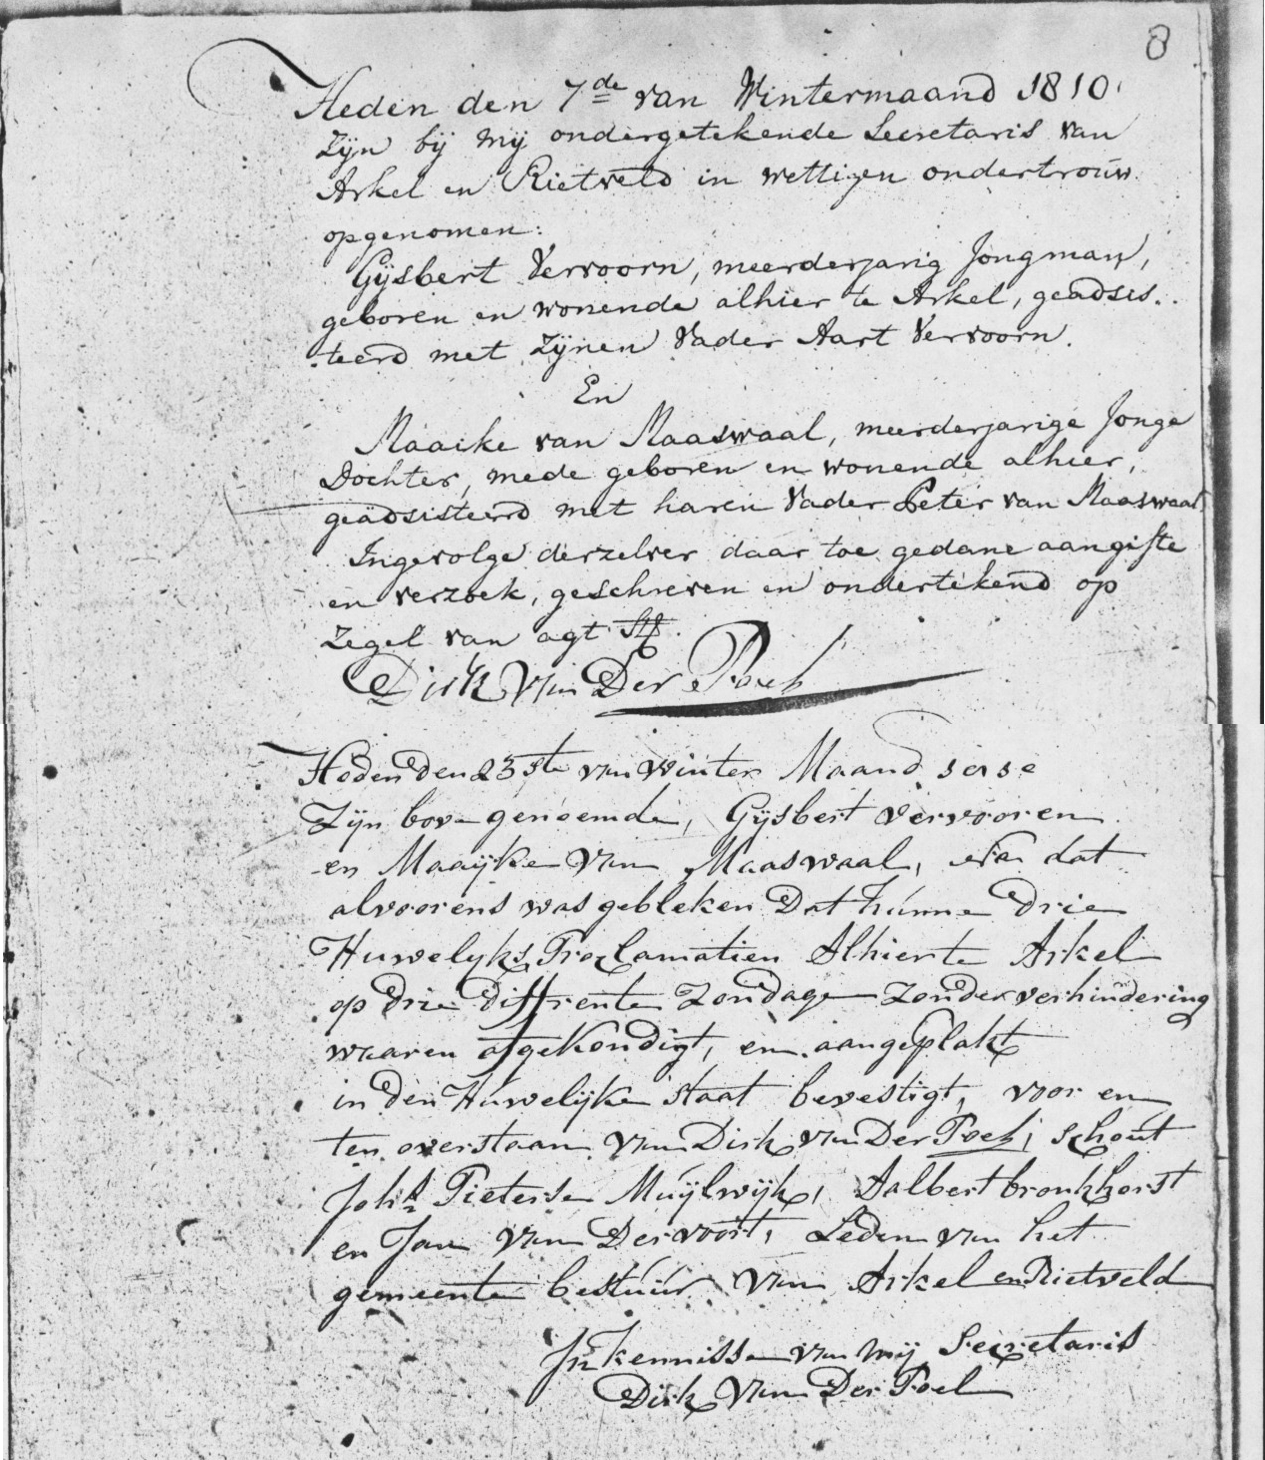 8
Heden den 7de van Wintermaand 1810
zijn bij mij ondergetekende Secretaris van
Arkel en Rietveld in wettigen ondertrouw
opgenomen:
Gijsbert Vervoorn, meerderjarig Jongman,
geboren en wonende alhier te Arkel, geadsis-
teerd met zijnen Vader Aart Vervoorn.
En
Maaike van Maaswaal, meerderjarige Jonge
Dochter, mede geboren en wonende alhier,
geädsisteerd met haren Vader Peter van Maaswaal
Ingevolge derzelver daar toe gedane aangifte
en verzoek, geschreven en ondertekend op
Zegel van agt
Dirk van Der Poel
Heden Den 23ste van Winter Maand
Zijn bove genoemde, Gijsbert Vervooren
en Maaijke van Maaswaal, na dat
alvoorens was gebleken Dat hunne Drie
Huwelyks Proclamatien Alhier te Arkel
op Drie Diffrente Zondage Zonder verhindering
waaren afgekondigt, en aangeplakt
in den Huwelijke staat bevestigt, voor en
ten overstaan van Dirk van Der Poel, schout
Johs Pieterse Muijlwijk, Aalbert bronkhorst
en Jan van Der voort, Leden van het
gemeente bestuur van Arkel en Rietveld
In kennisse van mij Secretaris
Dirk van Der Poel